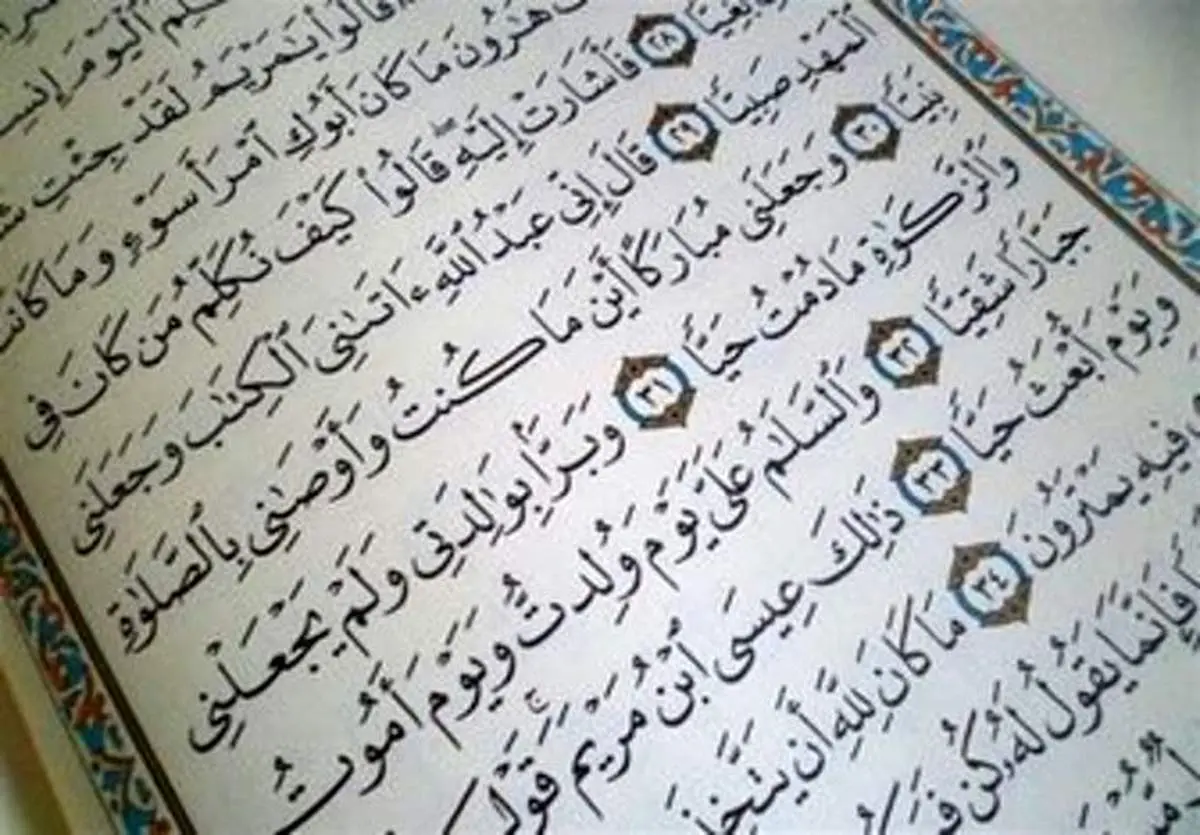 ٱلْيَوْمَ
قَالُوا۟ يَـٰمَرْيَمُ لَقَدْ جِئْتِ
هَـٰرُونَ مَا كَانَ أَبُوكِ ٱمْرَأَ سَوْءٍ وَمَا كَانَتْ
بَغِيًّا ٢٨ فَأَشَارَتْ إِلَيْهِ ۖ قَالُوا۟ كَيْفَ نُكَلِّمُ مَن كَانَ فِى
ٱلْمَهْدِ صَبِيًّا ٢٩ قَالَ إِنِّى عَبْدُ ٱللَّهِ ءَاتَىٰنِىَ ٱلْكِتَـٰبَ وَجَعَلَنِى
نَبِيًّا ٣٠ وَجَعَلَنِى مُبَارَكًا أَيْنَ مَا كُنتُ وَأَوْصَـٰنِى بِٱلصَّلَوٰةِ
وَٱلزَّكَوٰةِ مَا دُمْتُ حَيًّا ٣١ وَبَرًّۢا بِوَٰلِدَتِى وَلَمْ يَجْعَلْنِى
جَبَّارًا شَقِيًّا ٣٢ وَٱلسَّلَـٰمُ عَلَىَّ يَوْمَ وُلِدتُّ وَيَوْمَ أَمُوتُ
وَيَوْمَ أُبْعَثُ حَيًّا ٣٣ ذَٰلِكَ عِيسَى ٱبْنُ مَرْيَمَ ۚ قَوْلَ
فِيهِ يَمْتَرُونَ ٣٤ مَا كَانَ لِلَّهِ أَن يَتَّخِذَ
فَإِنَّمَا يَقُولُ لَهُۥ كُن